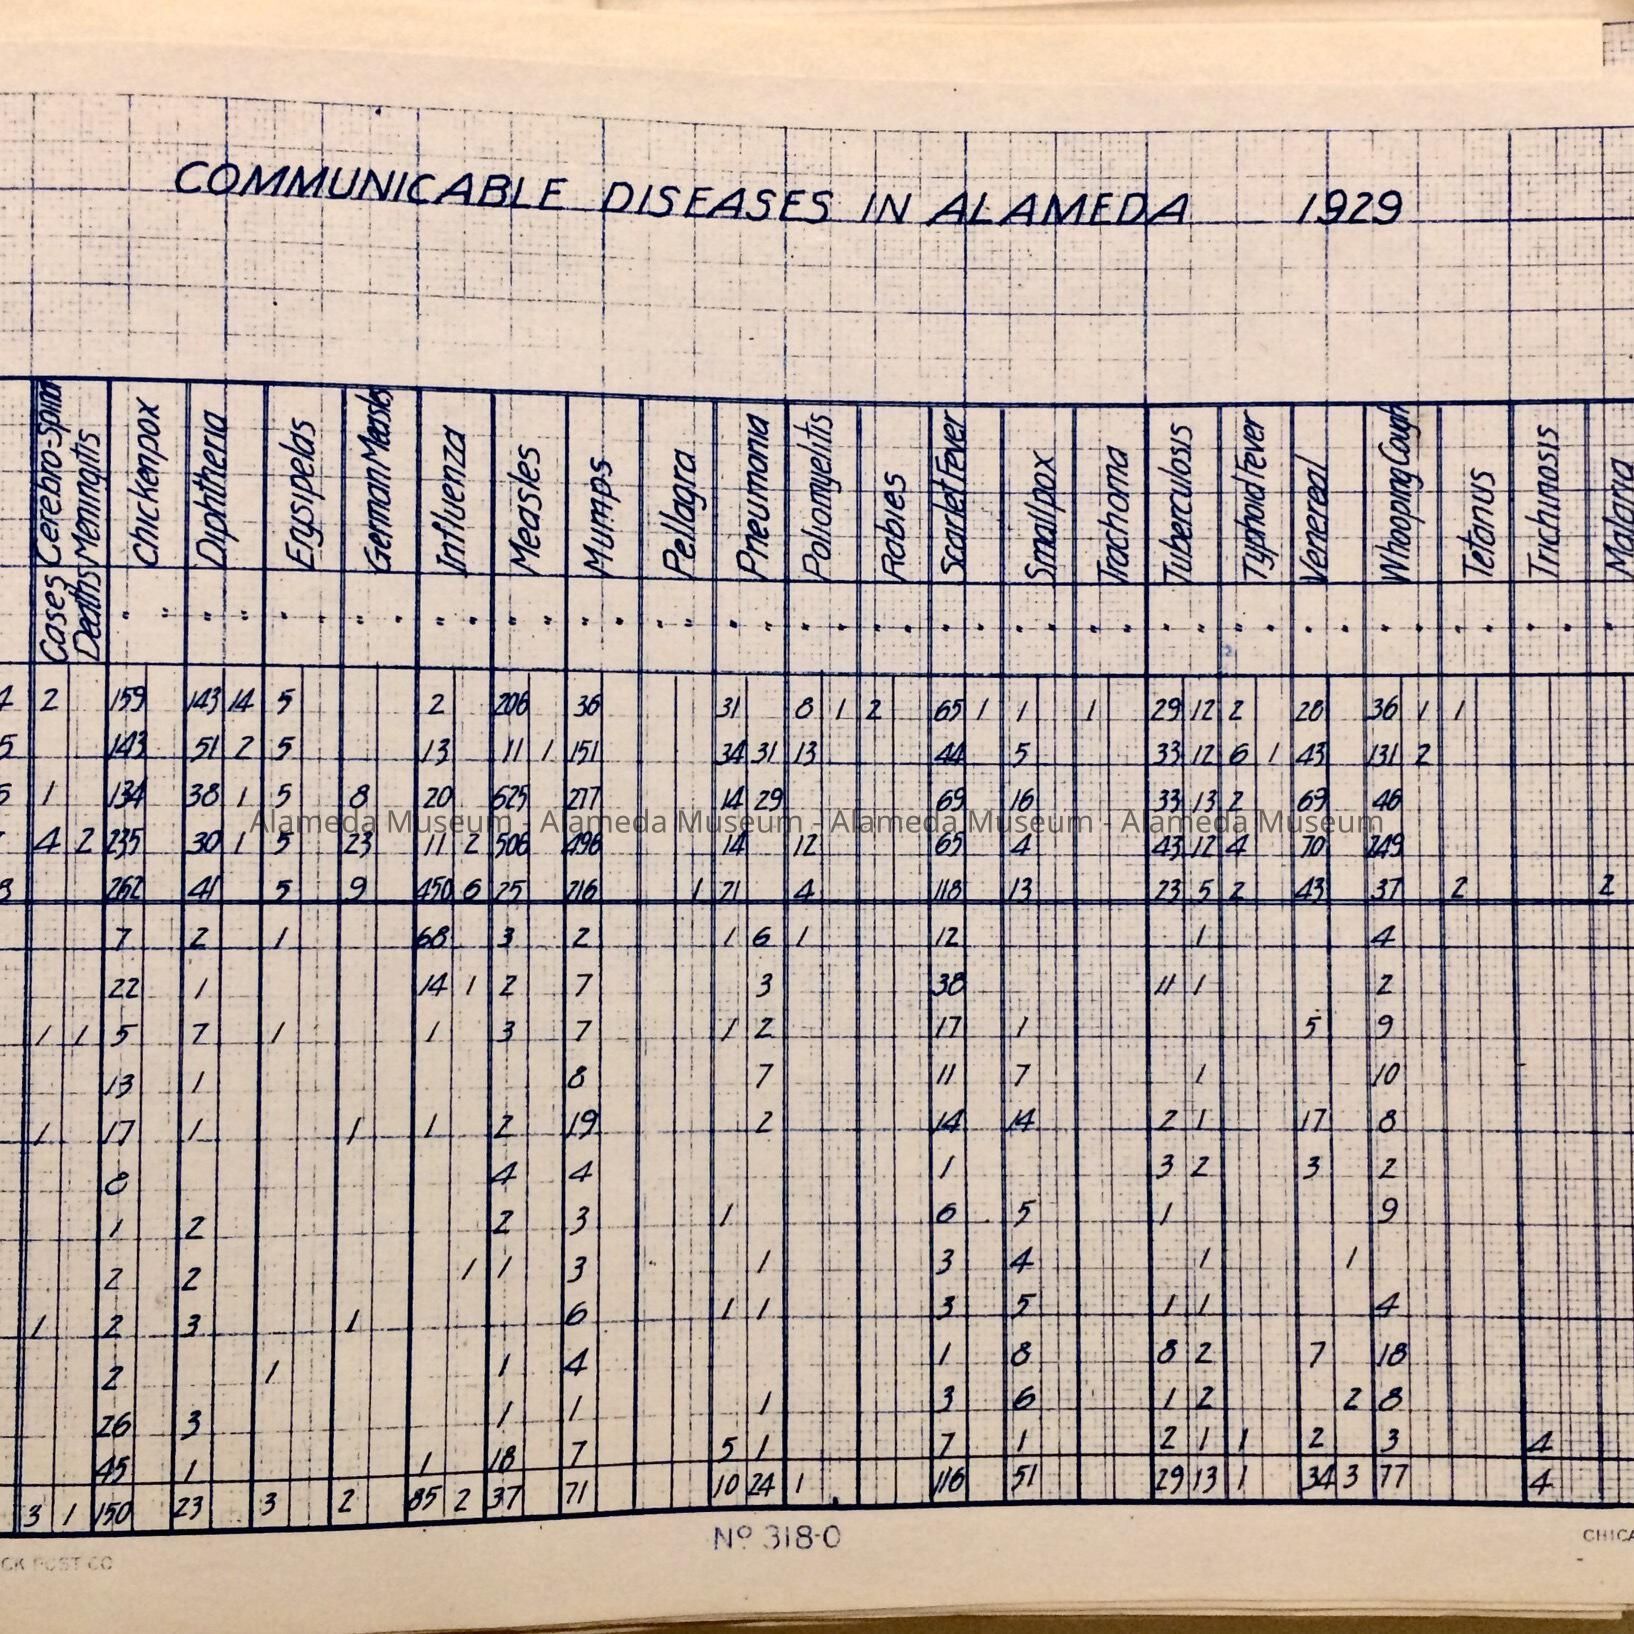 COMMUNICABLE DISEASES IN ALAMEDA 1929
Cases Cerebro-Spinal Deaths Meningitis Chickenpox Diphtheria Erysipelas German Measles Influenza Measles Mumps Pellagra Pneumonia Poliomyelitis Rabies Scarlet Fever Smallpox Trachoma Tuberculosis Typhoid Fever Venereal Whooping Cough Tetanus Trichinosis Malaria
4 2 159 143 14 5 2 206 36 31 8 1 2 65 1 1 1 29 12 2 28 36 1 1
5 143 51 2 5 13 11 1 151 34 31 13 44 5 33 12 6 1 43 131 2
6 1 134 38 1 5 8 20 625 277 14 29 69 16 33 13 2 69 46
Alameda Museum - Alameda Museum - Alameda Museum - Alameda Museum
7 4 2 235 30 1 5 23 11 2 506 496 14 12 65 4 43 12 4 70 249
8 262 41 5 9 450 6 25 216 1 21 4 118 13 23 5 2 43 37 2 2
7 2 1 68 3 2 1 6 1 12 1 4
22 1 14 1 2 7 3 38 11 1 2
1 1 5 7 1 1 3 7 1 2 17 1 5 9
13 1 8 7 11 7 1 10
1 17 1 1 1 2 19 2 14 14 2 1 17 8
8 4 4 1 3 2 3 2
1 2 2 3 1 6 5 1 9
2 2 1 1 3 1 3 4 1 1
1 2 3 1 6 1 1 3 5 1 1 4
2 1 1 4 1 8 8 2 7 18
26 3 1 1 1 3 6 1 2 2 8
45 1 1 18 7 5 1 7 1 2 1 1 2 3 4
3 1 150 23 3 2 85 2 37 71 10 24 1 116 51 29 13 1 34 3 77 4
Nº 318-0
CK POST CO
CHICA